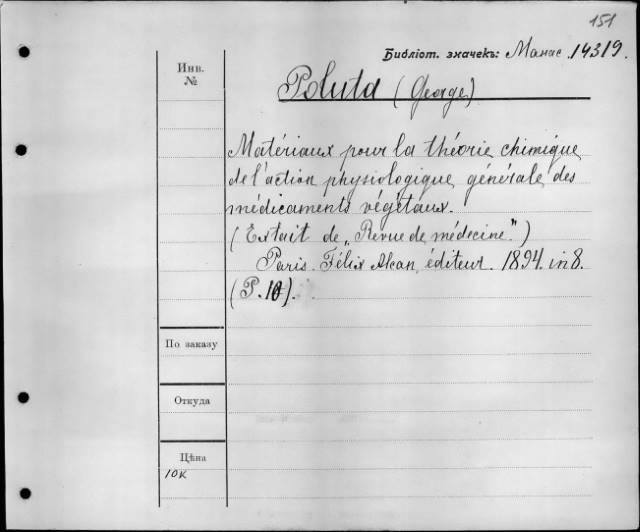 151
Библіот. значекъ: Манас. 14319.
Инв.
№
Poluta (George)
Matériaux pour la théorie chimique
de l'action physiologique générale des
médicaments végétaux.
(Extait de „Revue de médecine")
Paris. Félix Alcan, éditeur. 1894. in 8.
(P. 10).
По заказу
Откуда
Цѣна
10к